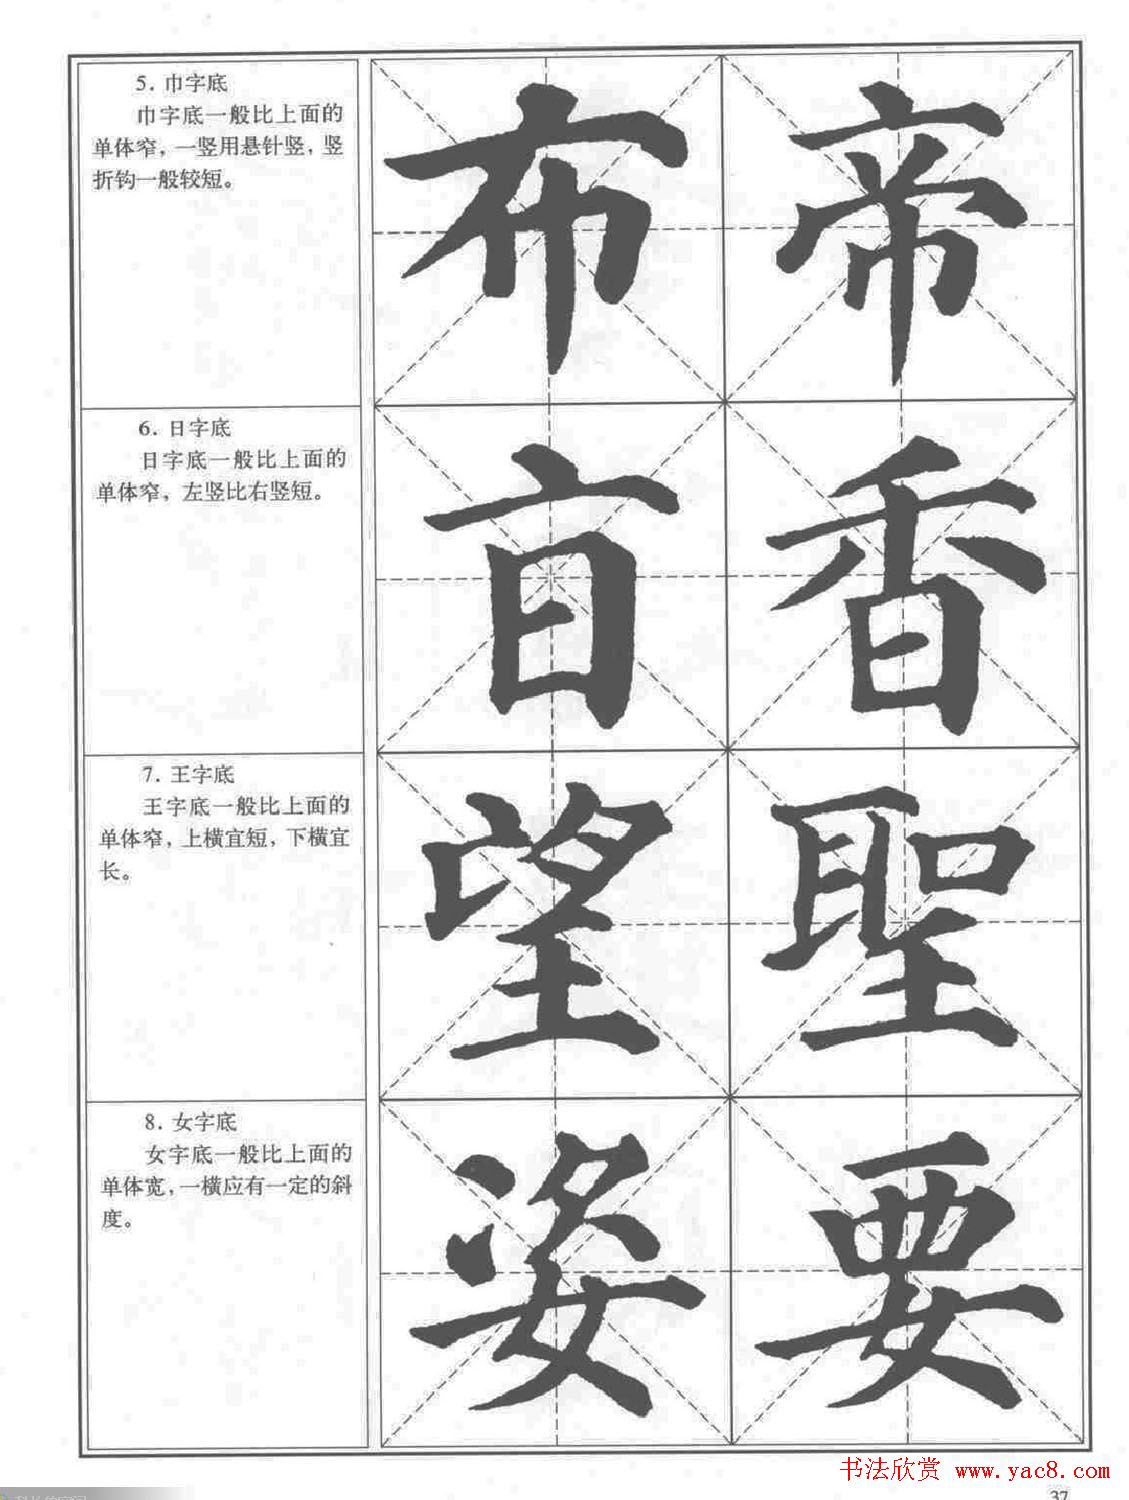 5. 巾字底
巾字底一般比上面的
单体窄，一竖用悬针竖，竖
折钩一般较短。
布 帝
6. 日字底
日字底一般比上面的
单体窄，左竖比右竖短。
香
7. 王字底
王字底一般比上面的
单体窄，上横宜短，下横宜
长。
望 聖
8. 女字底
女字底一般比上面的
单体宽，一横应有一定的斜
度。
姿 要
书法欣赏 www.yac8.com
37